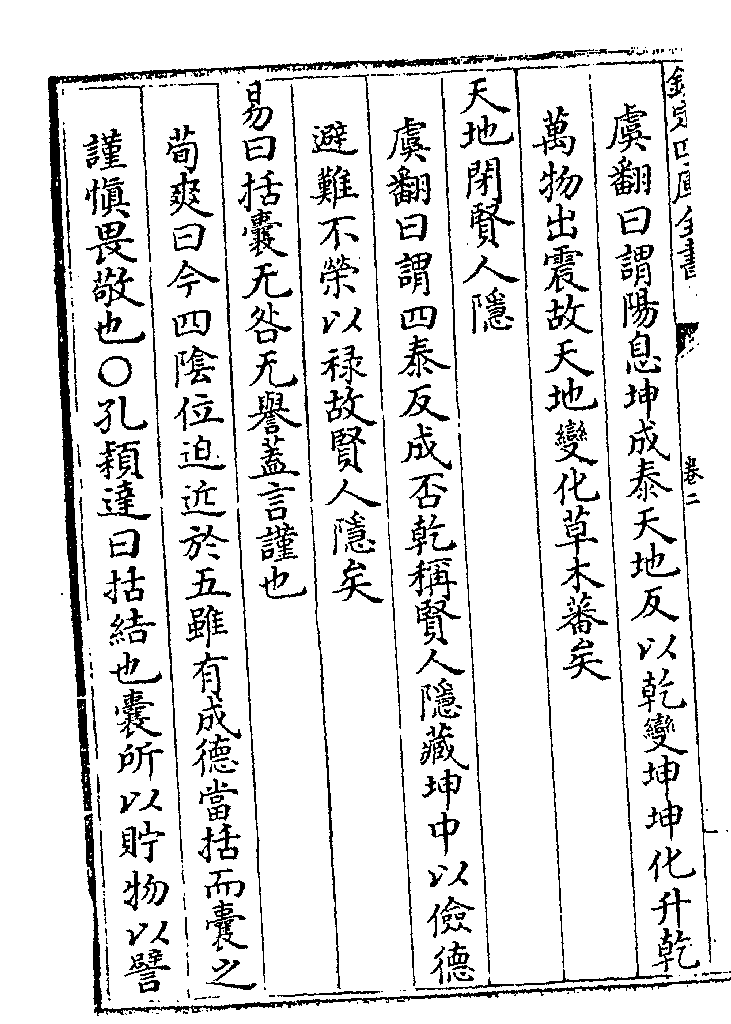 欽定四庫全書
卷二
虞翻曰謂陽息坤成泰天地反以乾變坤坤化升乾
萬物出震故天地變化草木蕃矣
天地閉賢人隱
虞翻曰謂四泰反成否乾稱賢人隱藏坤中以儉德
避難不榮以禄故賢人隱矣
易曰括囊无咎无譽蓋言謹也
荀爽曰今四陰位迫近於五雖有成德當括而囊之
謹慎畏敬也〇孔穎達曰括結也囊所以貯物以譬